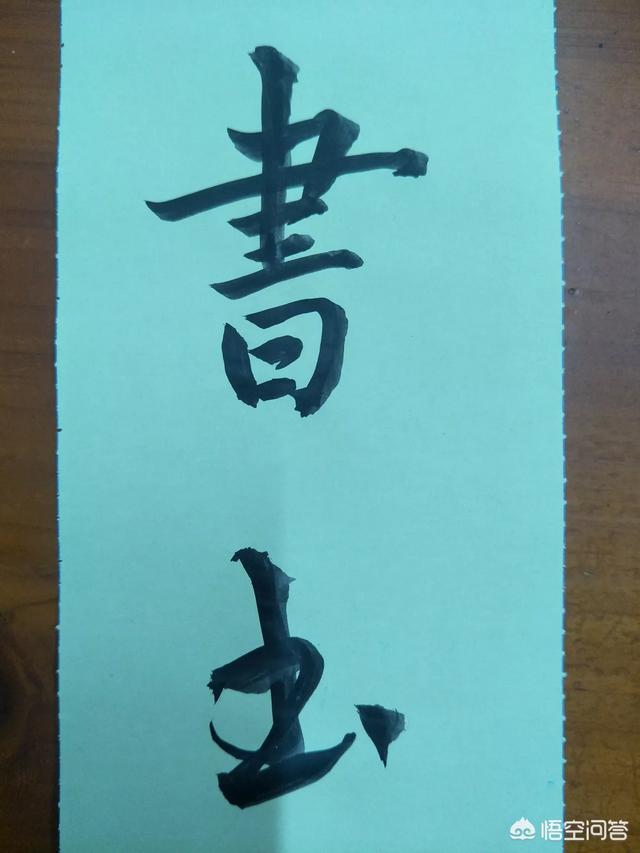 書
悟空问答